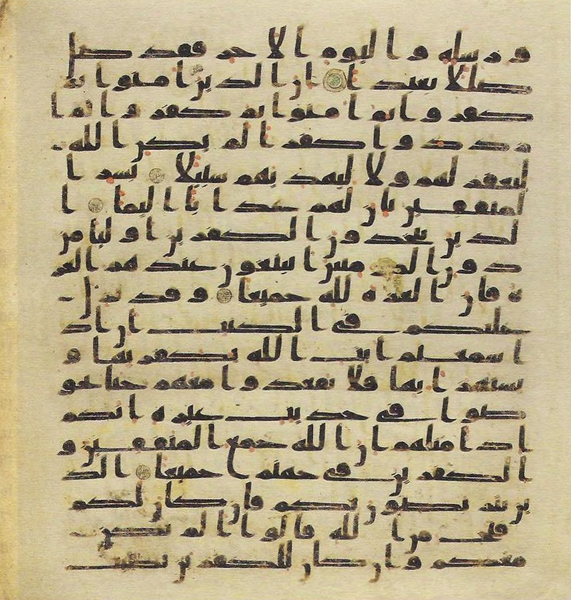 ورسله واليوم الاخر فقد ضل
ضللا بعيدا ان الذين امنوا ثم
كفروا ثم امنوا ثم كفروا ثم ا
زددوا كفرا لم يكن الله
ليغفر لهم ولا ليهديهم سبيلا بشر ا
لمنفقين بان لهم عذابا اليما ا
لذين يتخذون الكفرين اوليا من
دون المومنين ايبتغون عندهم العز
ة فان العزة لله جميعا وقد نزل
عليكم في الكتب ان اذ
ا سمعتم ايت الله يكفر بها و
يستهزا بها فلا تقعدوا معهم حتى يخو
ضوا في حديث غيره انكم
اذا مثلهم ان الله جمع المنفقين و
الكفرين في جهنم جميعا الذ
ين يتربصون بكم فان كان لكم
فتح من الله قالوا الم نكن
معكم وان كان للكفرين نصيب